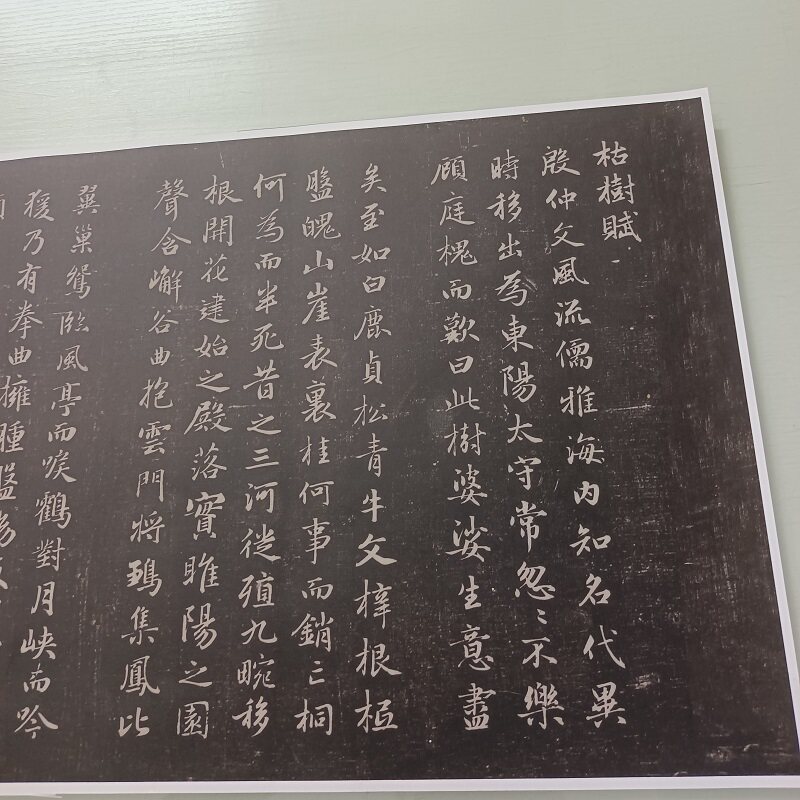 枯樹賦
殷仲文風流儒雅海内知名代異
時移出為東陽太守常忽〻不樂
顧庭槐而歎曰此樹婆娑生意盡
矣至如白鹿貞松青牛文梓根柢
盤魄山崖表裏桂何事而銷亡桐
何為而半死昔之三河徙殖九畹移
根開花建始之殿落實睢陽之園
聲含嶰谷曲抱雲門將鶵集鳳比
翼巢鴛臨風亭而唳鶴對月峽而吟
猨乃有拳曲擁腫盤